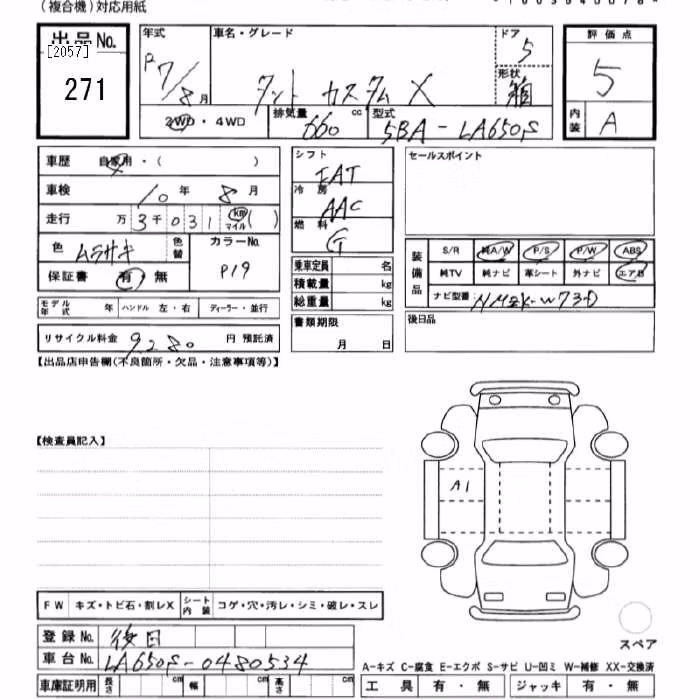 （複合機）対応用紙
出品No. [2057] 271
年式 R7/8月
車名・グレード タント カスタム X
ドア 5
形状 箱
評価点 5
内装 A
2WD・4WD
排気量 660 cc
型式 5BA-LA650S
車歴 自家用・（ ）
車検 10年 8月
走行 万3千031 km マイル（ ）
色 ムラサキ 色替
カラーNo. P19
保証書 有・無
シフト FAT
冷房 AAC
燃料 G
セールスポイント
乗車定員 名
積載量 kg
総重量 kg
装備品 S/R 純A/W P/S P/W ABS
純TV 純ナビ 革シート 外ナビ エアB
ナビ型番 NMZK-W73D
モデル年式 年 ハンドル 左・右 ディーラー・並行
リサイクル料金 9280 円 預託済
書類期限 月 日
後日品
【出品店申告欄(不良箇所・欠品・注意事項等)】
【検査員記入】
A1
FW キズ・トビ石・割レX シート内装 コゲ・穴・汚レ・シミ・破レ・スレ
登録No. 後日
スペア
車台No. LA650S-0480534
A-キズ C-腐食 E-エクボ S-サビ U-凹ミ W-補修 XX-交換済
車庫証明用 長さ cm 幅 cm 高さ cm
工具 有・無 ジャッキ 有・無